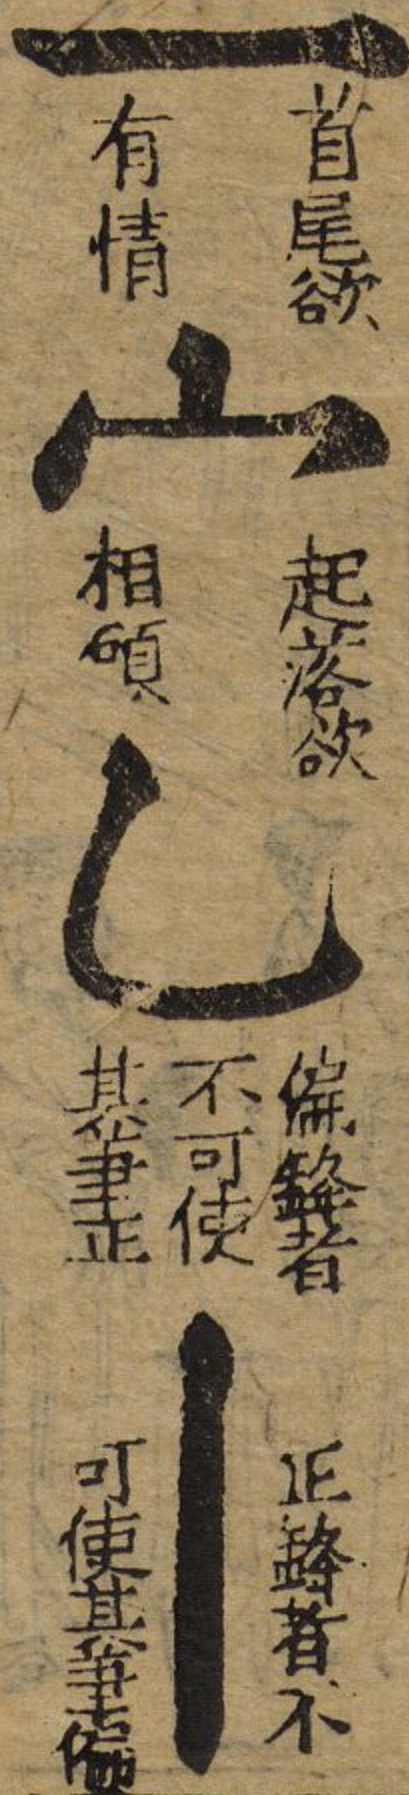 一
首尾欲
有情
山
起落欲
相顧
乚
偏鋒者
不可使
其筆正
丨
正鋒者不
可使其筆偏